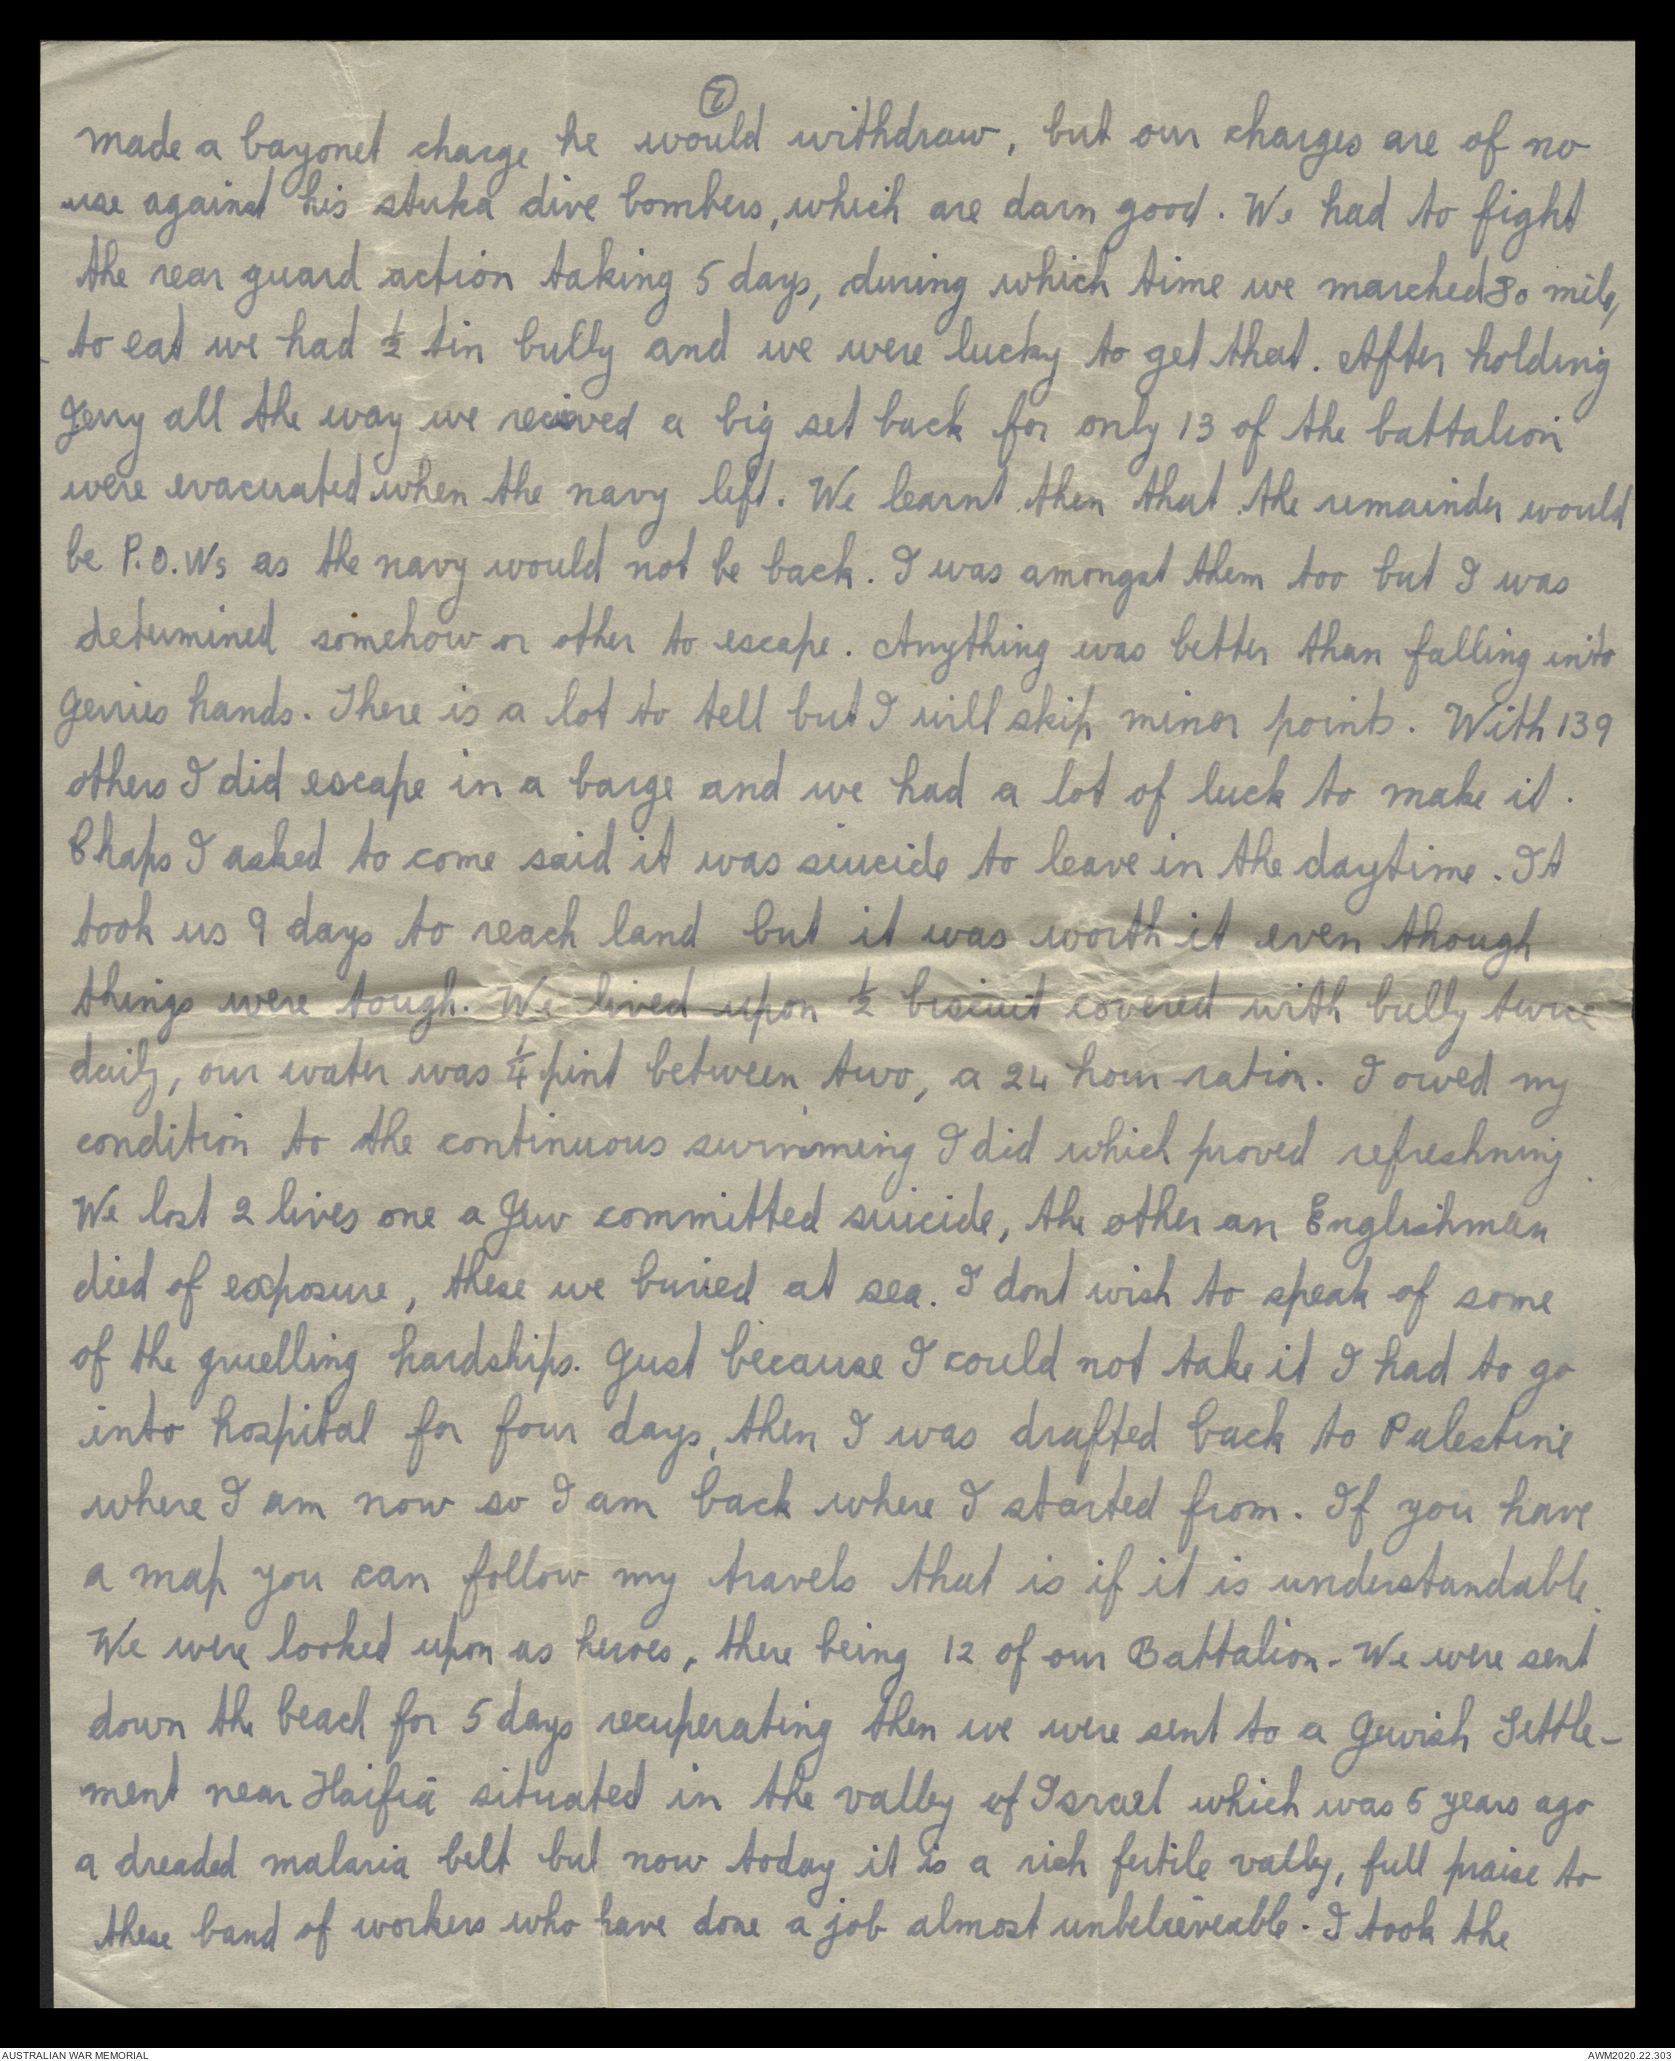 7
made a bayonet charge he would withdraw, but our charges are of no
use against his stuka dive bombers, which are darn good. We had to fight
the rear guard action taking 5 days, during which time we marched 80 mile,
to eat we had ½ tin bully and we were lucky to get that. After holding
Jerry all the way we recieved a big set back for only 13 of the battalion
were evacuated when the navy left. We learnt then that the remainder would
be P.O.Ws as the navy would not be back. I was amongst them too but I was
determined somehow or other to escape. Anything was better than falling into
Jerries hands. There is a lot to tell but I will skip minor points. With 139
others I did escape in a barge and we had a lot of luck to make it.
Chaps I asked to come said it was suicide to leave in the daytime. It
took us 9 days to reach land but it was worth it even though
things were tough. We lived upon ½ biscuit covered with bully twice
daily, our water was ¼ pint between two, a 24 hour ration. I owed my
condition to the continuous swimming I did which proved refreshning.
We lost 2 lives one a Jew committed suicide, the other an Englishman
died of exposure, these we buried at sea. I dont wish to speak of some
of the gruelling hardships. Just because I could not take it I had to go
into hospital for four days, then I was drafted back to Palestine
where I am now so I am back where I started from. If you have
a map you can follow my travels that is if it is understandable.
We were looked upon as heroes, there being 12 of our Battalion. We were sent
down the beach for 5 days recuperating then we were sent to a Jewish Settle-
ment near Haifia situated in the valley of Israel which was 5 years ago
a dreaded malaria belt but now today it is a rich fertile valley, full praise to
these band of workers who have done a job almost unbelieveable. I took the
AUSTRALIAN WAR MEMORIAL
AWM2020.22.303